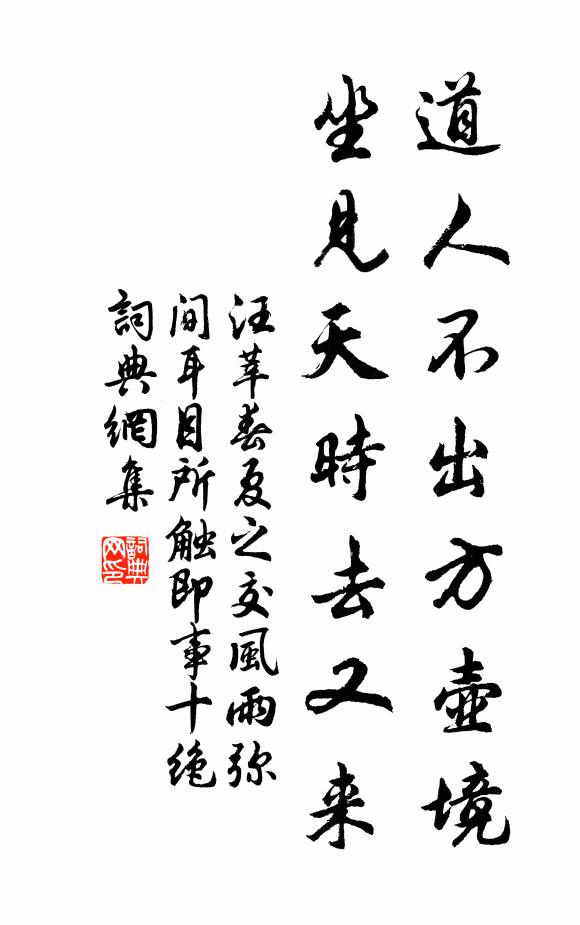 道人不出方壺境
坐見天時去又来
汪莘春夏之交風雨弥
间耳目所触即事十绝
詞典網集
詞典網印